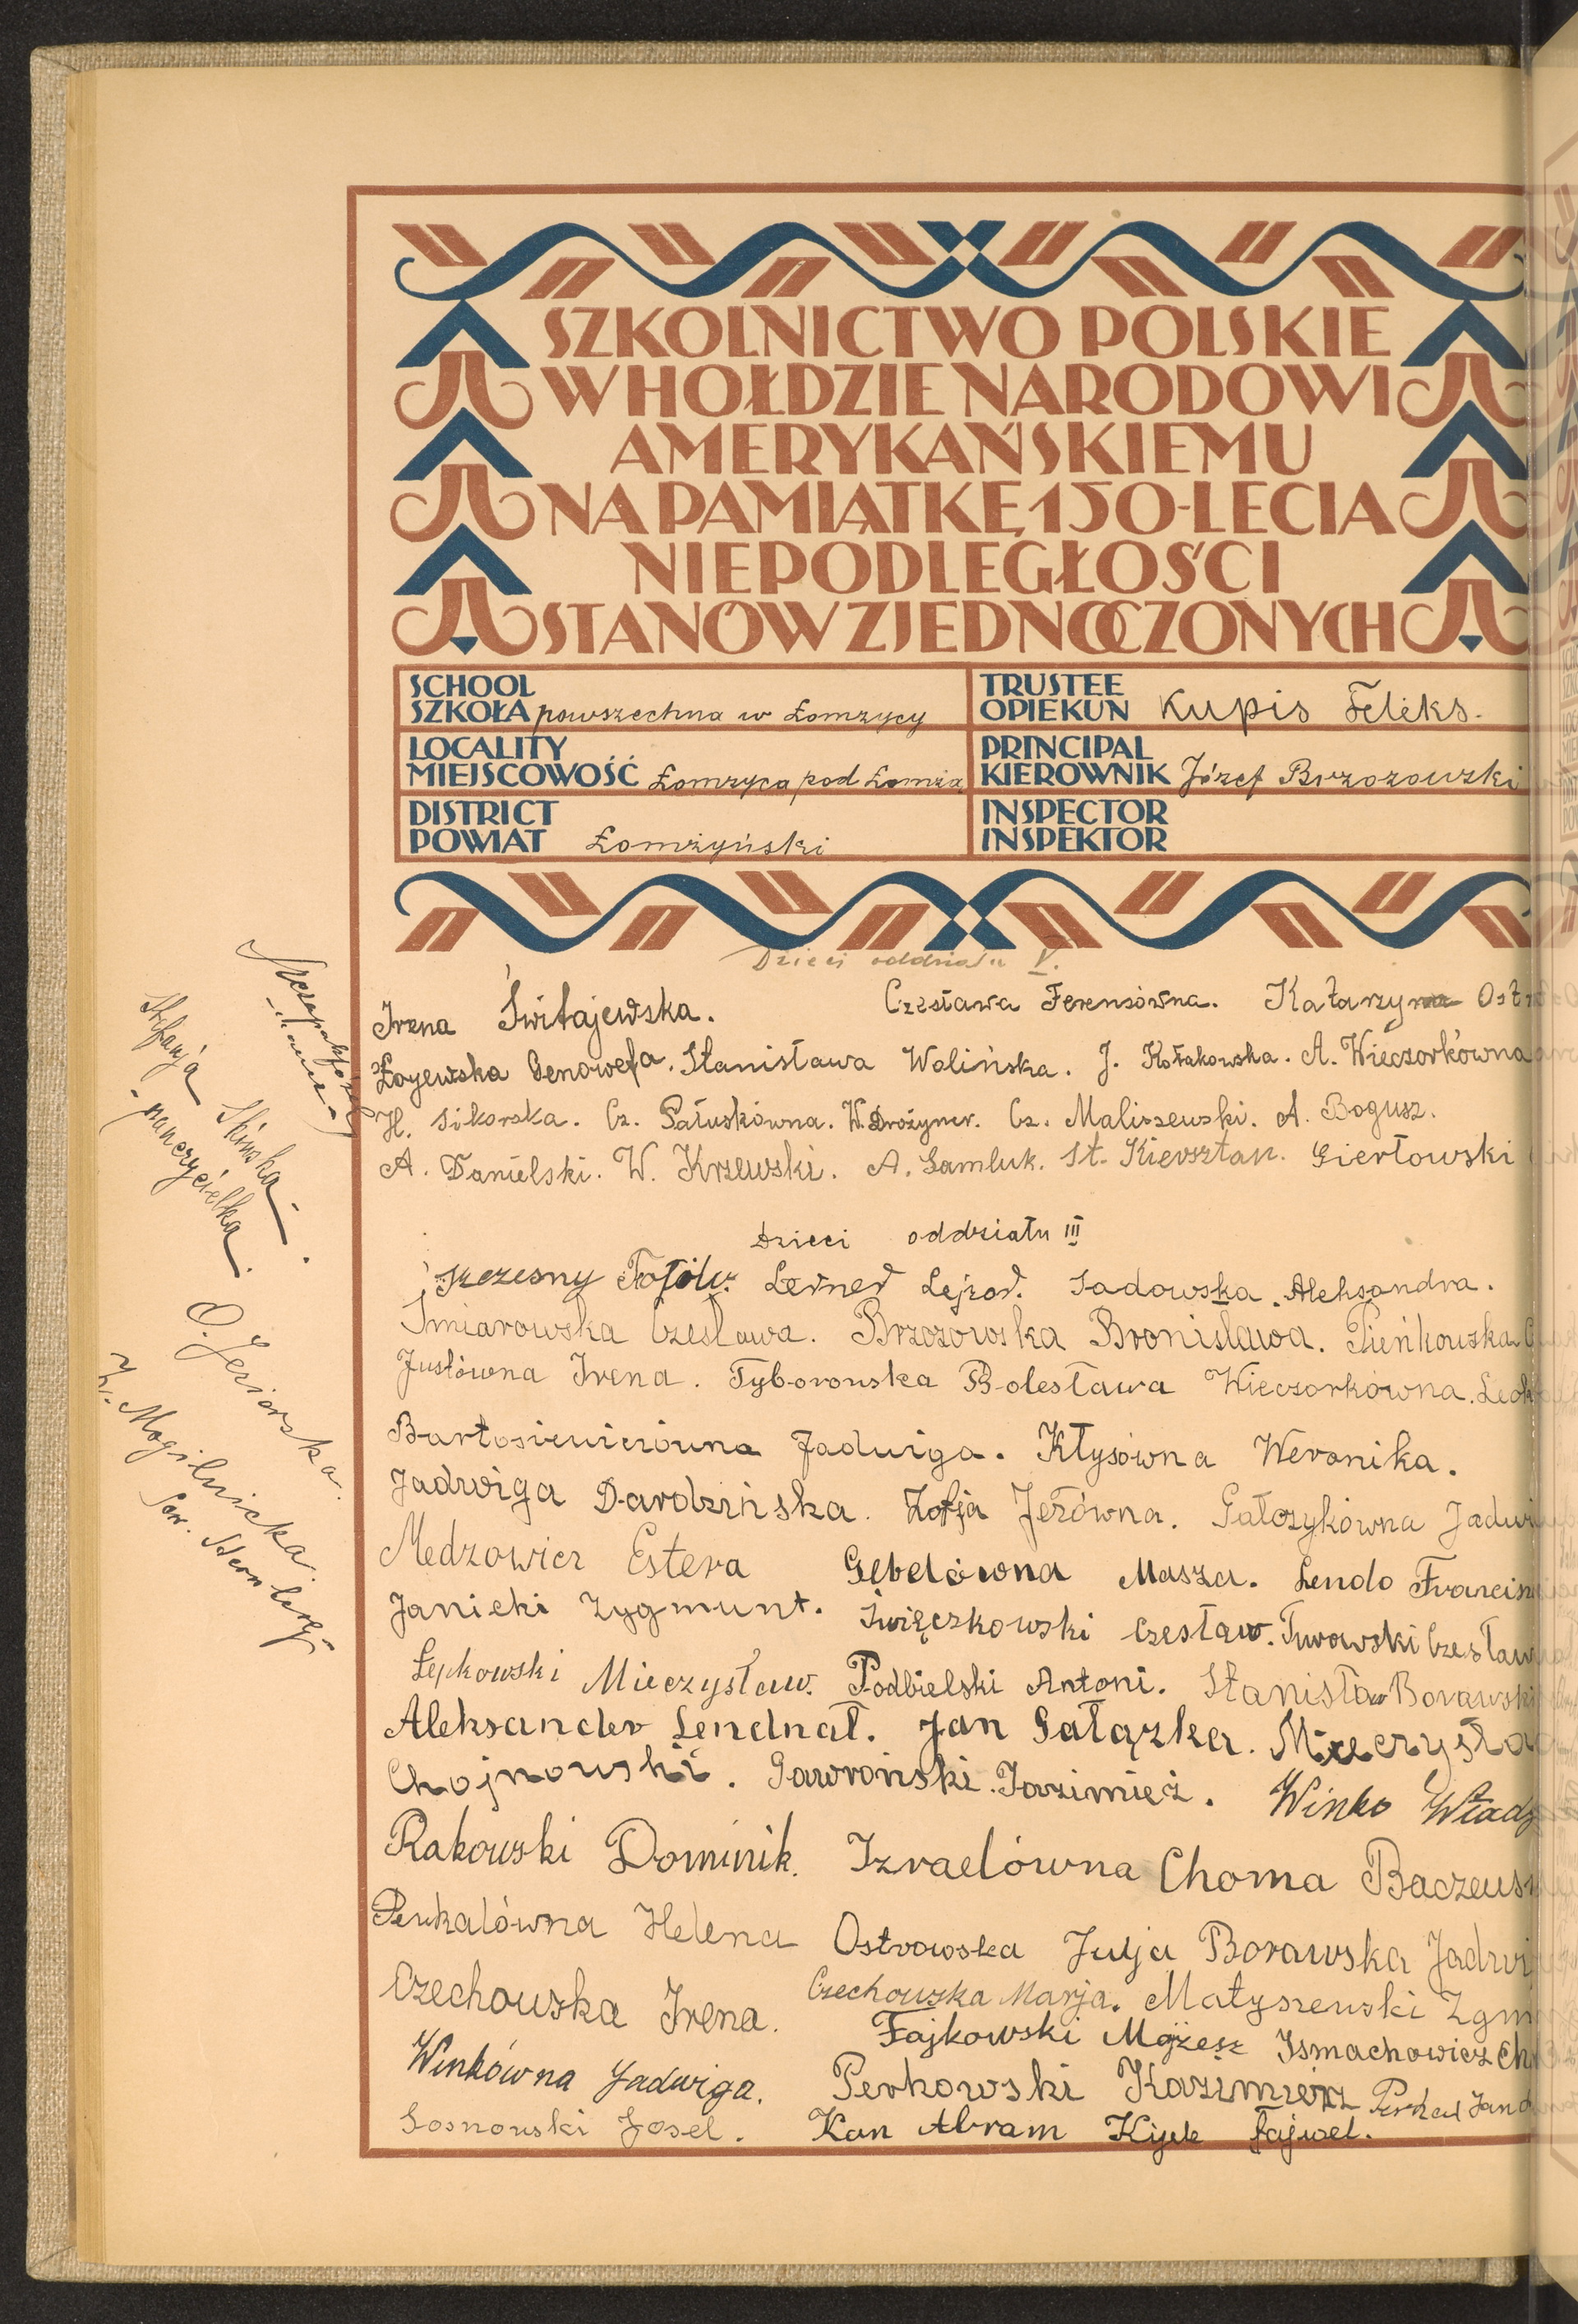 SZKOLNICTWO POLSKIE
W HOŁDZIE NARODOWI
AMERYKAŃSKIEMU
NA PAMIĄTKĘ 150-LECIA
NIEPODLEGŁOŚCI
STANÓW ZJEDNOCZONYCH
SCHOOL
SZKOŁA powszechna w Łomżycy
TRUSTEE
OPIEKUN Kupis Feliks.
LOCALITY
MIEJSCOWOŚĆ Łomżyca pod Łomżą
PRINCIPAL
KIEROWNIK Józef Brzozowski
DISTRICT
POWIAT Łomżyński
INSPECTOR
INSPEKTOR
Dzieci oddziału V.
Irena Świtajewska. Czesława Ferensówna. Katarzyna
Łojewska Genowefa. Stanisława Wolińska. J. Kołakowska. A. Wieczorkówna
H. Sikorska. Cz. Pałuskówna. W. Drożyner. Cz. Maliszewski. A. Bogusz.
A. Danielski. W. Krzewski. A. Samluk. St. Kiersztan. Giertowski
Dzieci oddziału III
Szczesny Lerner Lejzor. Sadowska Aleksandra.
Śmiarowska Czesława. Brzozowska Bronisława. Pieńkowska
Justówna Irena. Tyborowska Bolesława Wieczorkówna.
Bartosiewiczówna Jadwiga. Kłysówna Weronika.
Jadwiga Dardzińska. Zofja Jeżówna. Gałczykówna
Medzowicz Estera Gebelówna Masza. Lendo
Janicki Zygmunt. Święczkowski Czesław. Turowski
Łepkowski Mieczysław. Podbielski Antoni. Stanisław Borawski
Aleksander Lendnał. Jan Gałązka.
Chojnowski. Gawroński Kazimież. Winko
Rakowski Dominik. Izraelówna Choma
Perkalówna Helena Ostrowska Julja Borawska
Czechowska Irena. Czechowska Marja. Matyszewski
Fajkowski Mojżesz Ismachowicz
Winkówna Jadwiga. Perkowski Kazimierz
Sosnowski Josel. Kan Abram Kijek Fajwel.
Stefanja Skinska
- nauczycielka.
O. Jeziorska.
Z. Mogilnicka.